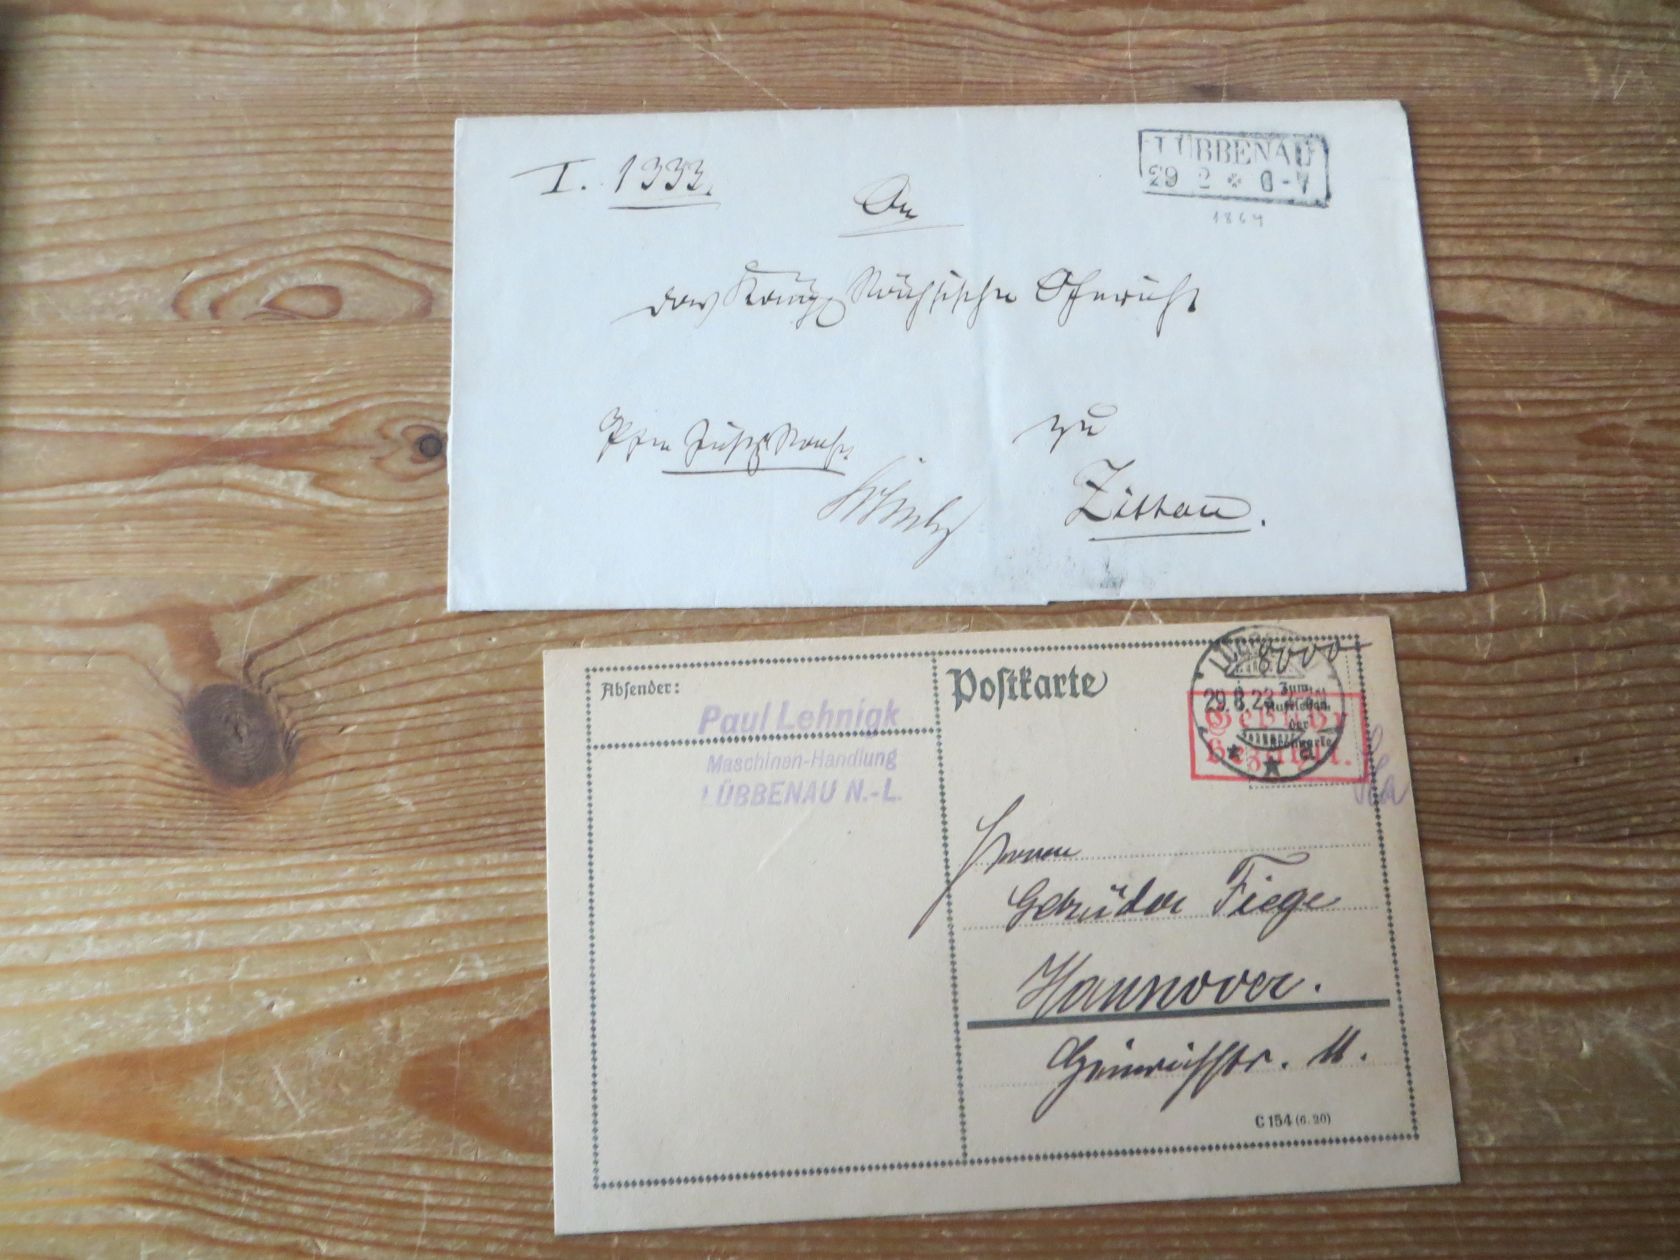 I. 1333.
LÜBBENAU
29 2 6-7
1864
An
das Königl. Sächsische Gericht
zu
Zittau.
Absender:
Paul Lehnigk
Maschinen-Handlung
LÜBBENAU N.-L.
Postkarte
8000
29.8.23
Zum
Aufkleben
der
Gebühr
bezahlt.
Herren
Gebrüder Fiege
Hannover.
Heinrichstr. 11.
C 154 (6. 20)